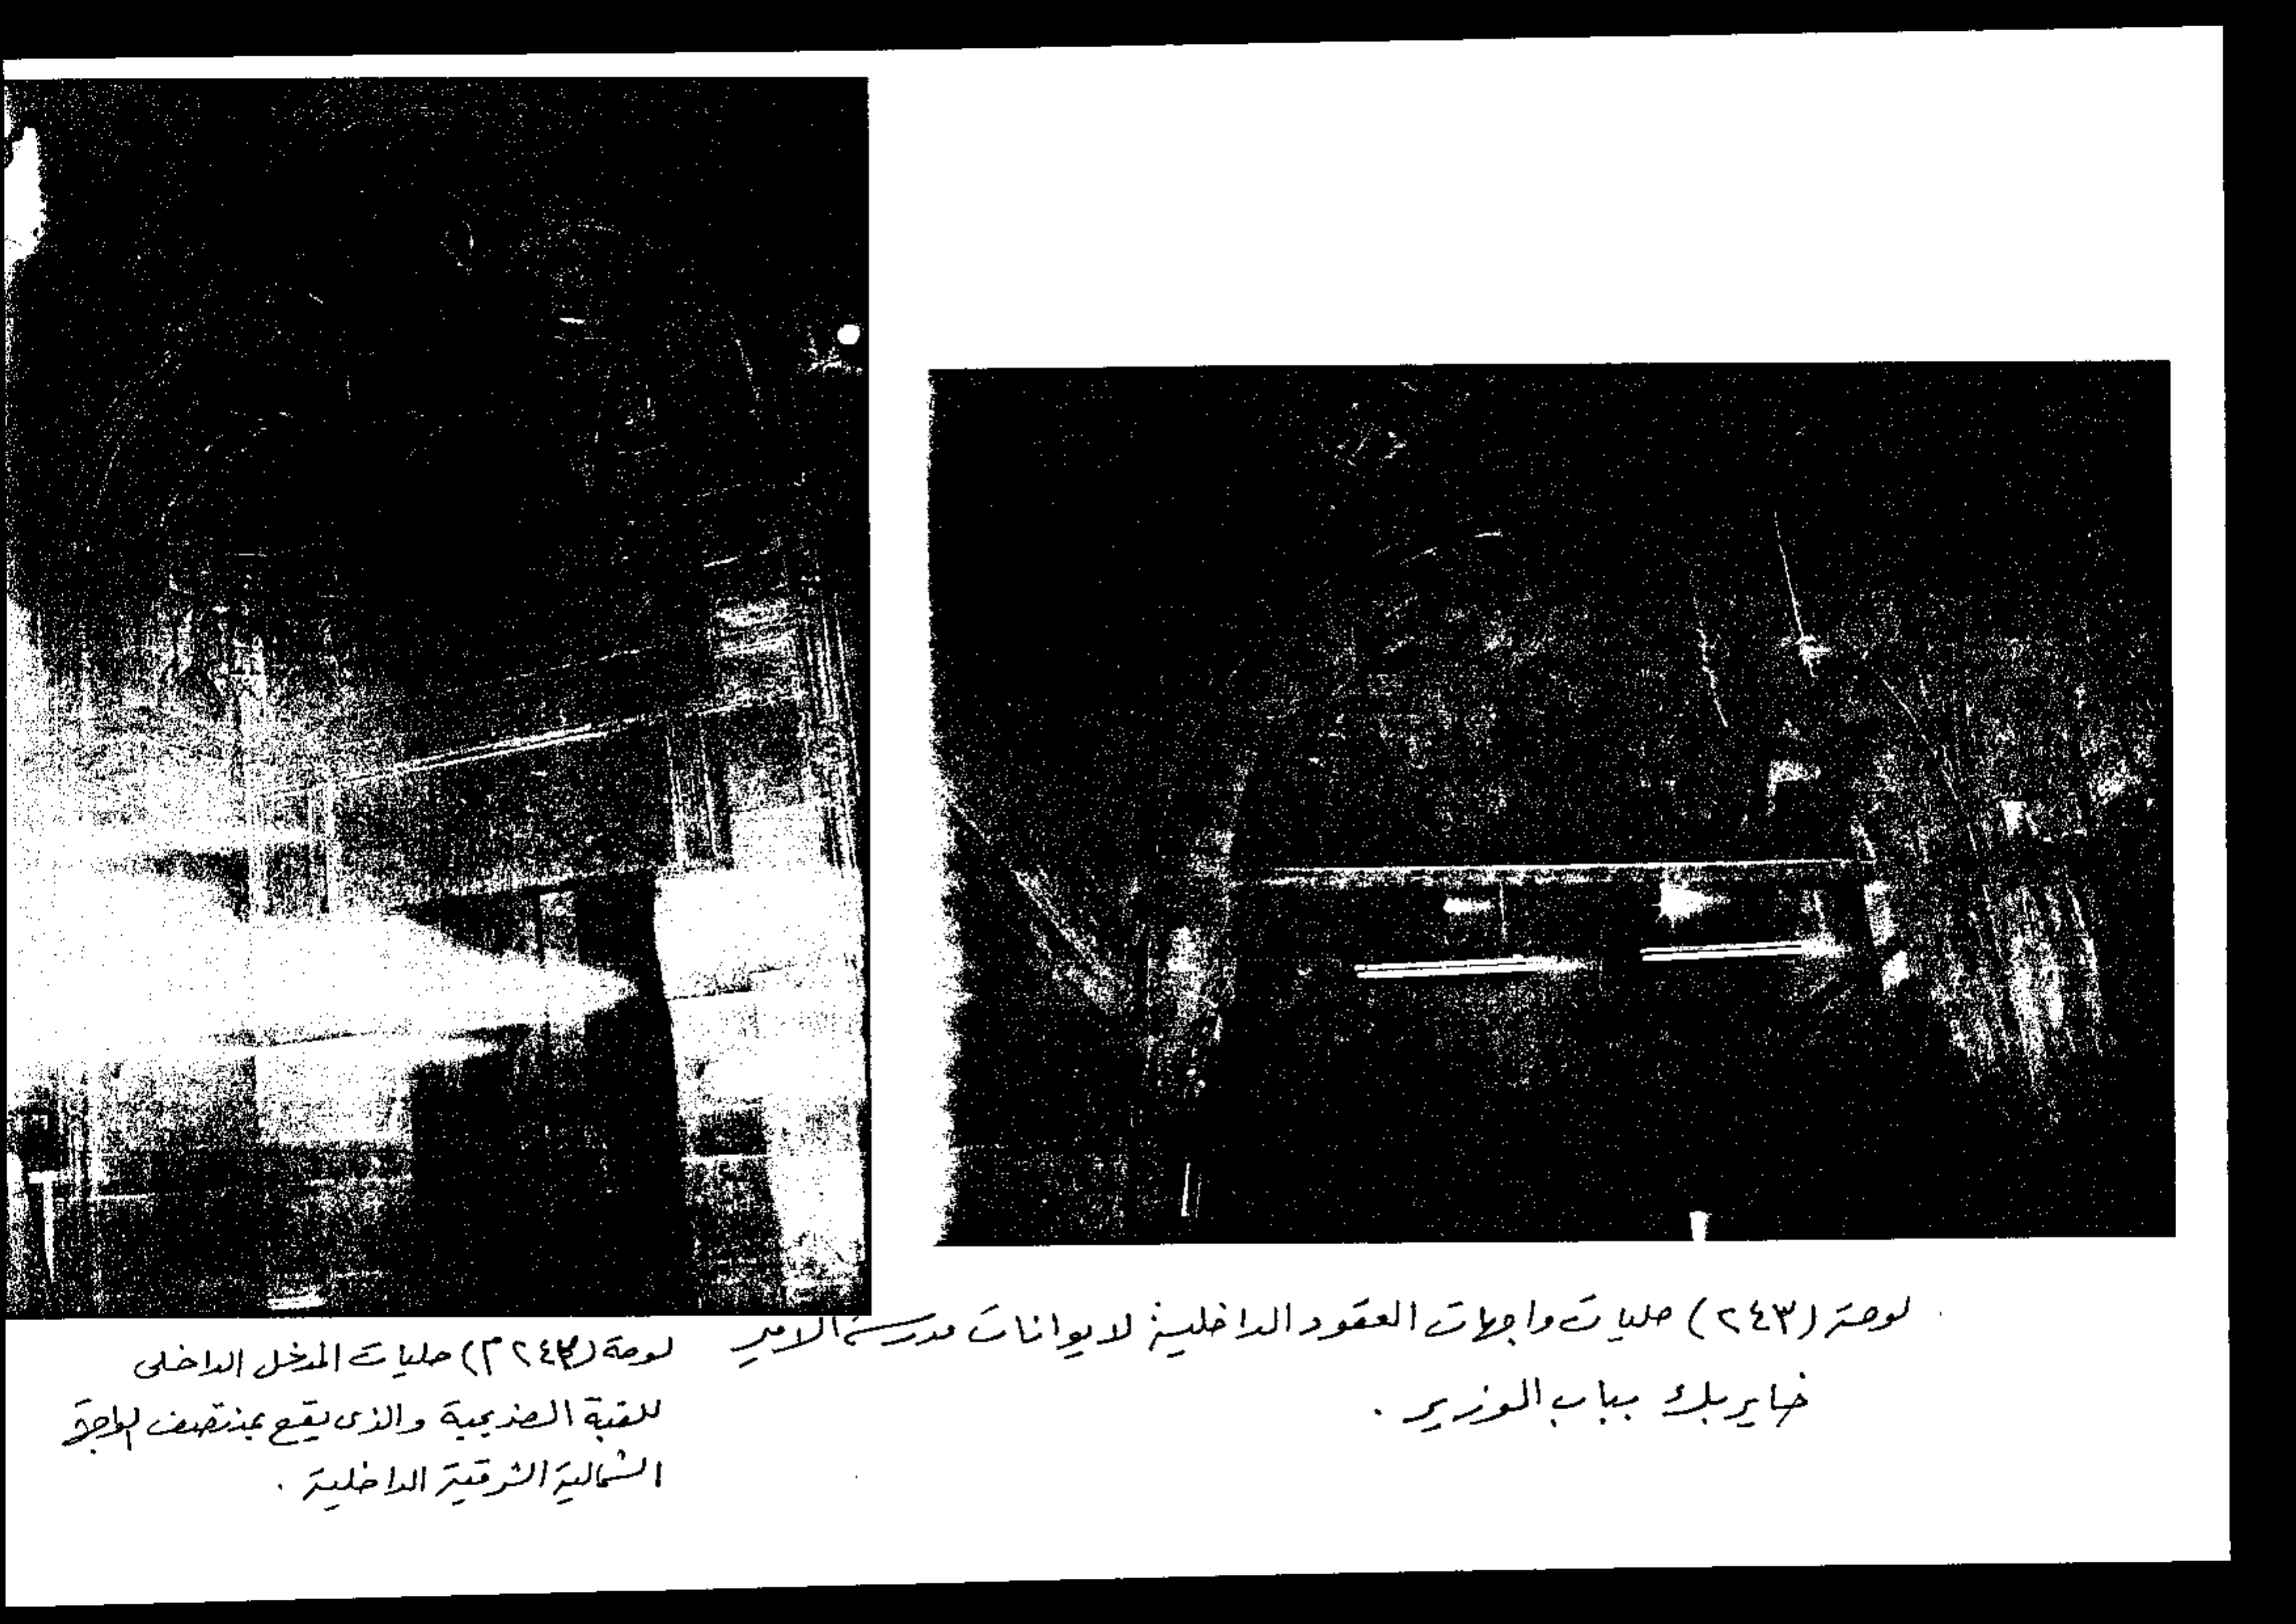 لوحة (٢٤٣) حليات واجهات العقود الداخلية لايوانات مدرسة الامير
خاير بك بباب الوزير .
لوحة (٢٤٣ م) حليات المدخل الداخلى
للقبة الضريحية والذى يقع بمنتصف الواجهة
الشمالية الشرقية الداخلية .